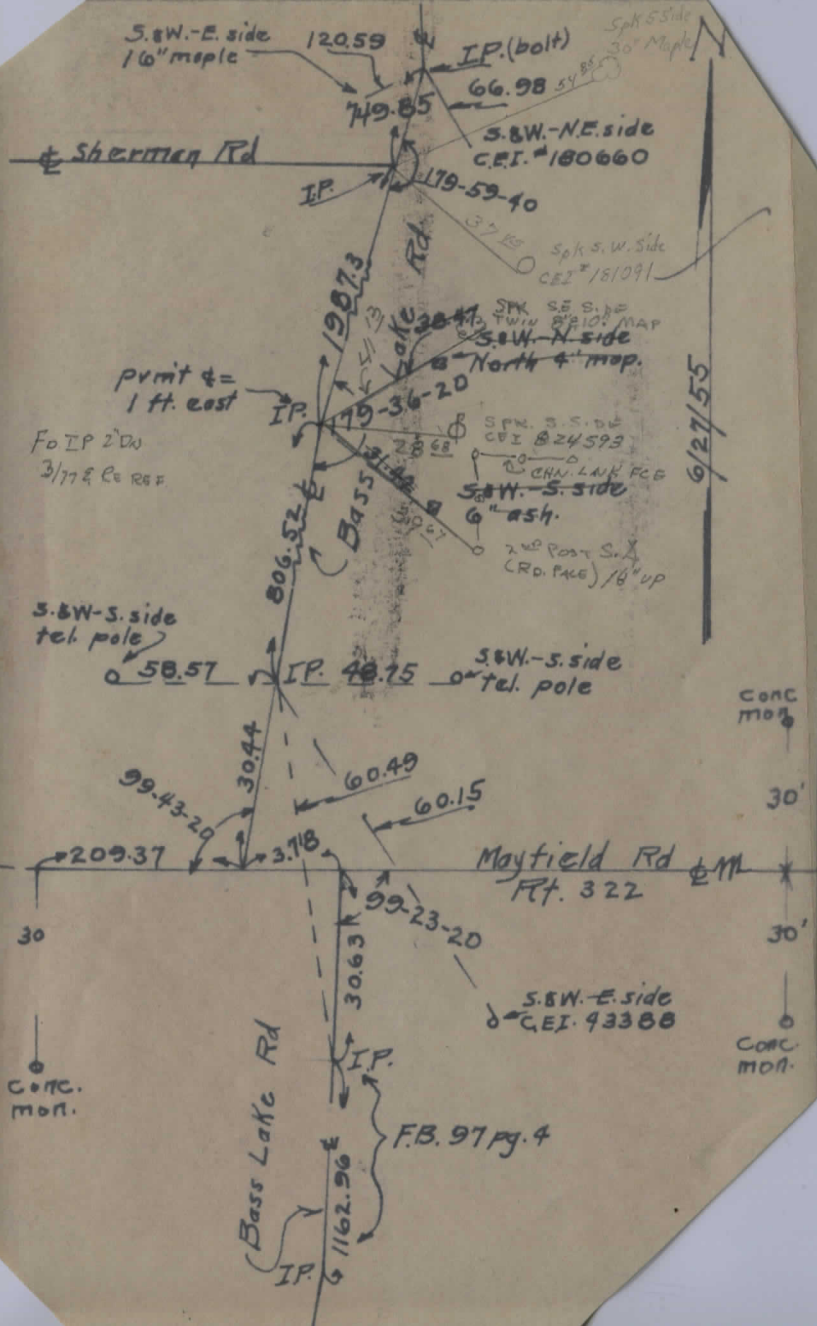 S.&W.-E. side
16" maple
120.59
I.P. (bolt)
Spk S Side
30" Maple
N
66.98
54.85
749.85
S.&W.-N.E. side
C.E.I. #180660
℄ Sherman Rd
I.P.
179-59-40
Spk S.W. Side
CEI #181091
1987.3
Lake Rd
38.47
SPK SE SIDE
TWIN 8"&10" MAP
S.&W.-N. side
North 4" map.
pvmit ℄ =
1 ft. east
I.P.
179-36-20
6/27/55
Fo IP 2" DN
3/77 & Re REF
SPK. S. SIDE
CEI 824593
28.68
CHN. LNK FCE
S.&W.-S. side
6" ash.
2nd Post S. △
(RD. FACE) 18" UP
806.52
℄
Bass
S.&W-S. side
tel. pole
58.57
I.P.
48.75
S.&W.-S. side
tel. pole
conc
mon.
30.44
99-43-20
60.49
60.15
30'
209.37
3.78
Mayfield Rd ℄
Rt. 322
99-23-20
30
30'
30.63
S.&W.-E. side
C.E.I. 43388
I.P.
Conc.
mon.
conc.
mon.
F.B. 97 pg. 4
Bass Lake Rd
℄
1162.96
I.P.